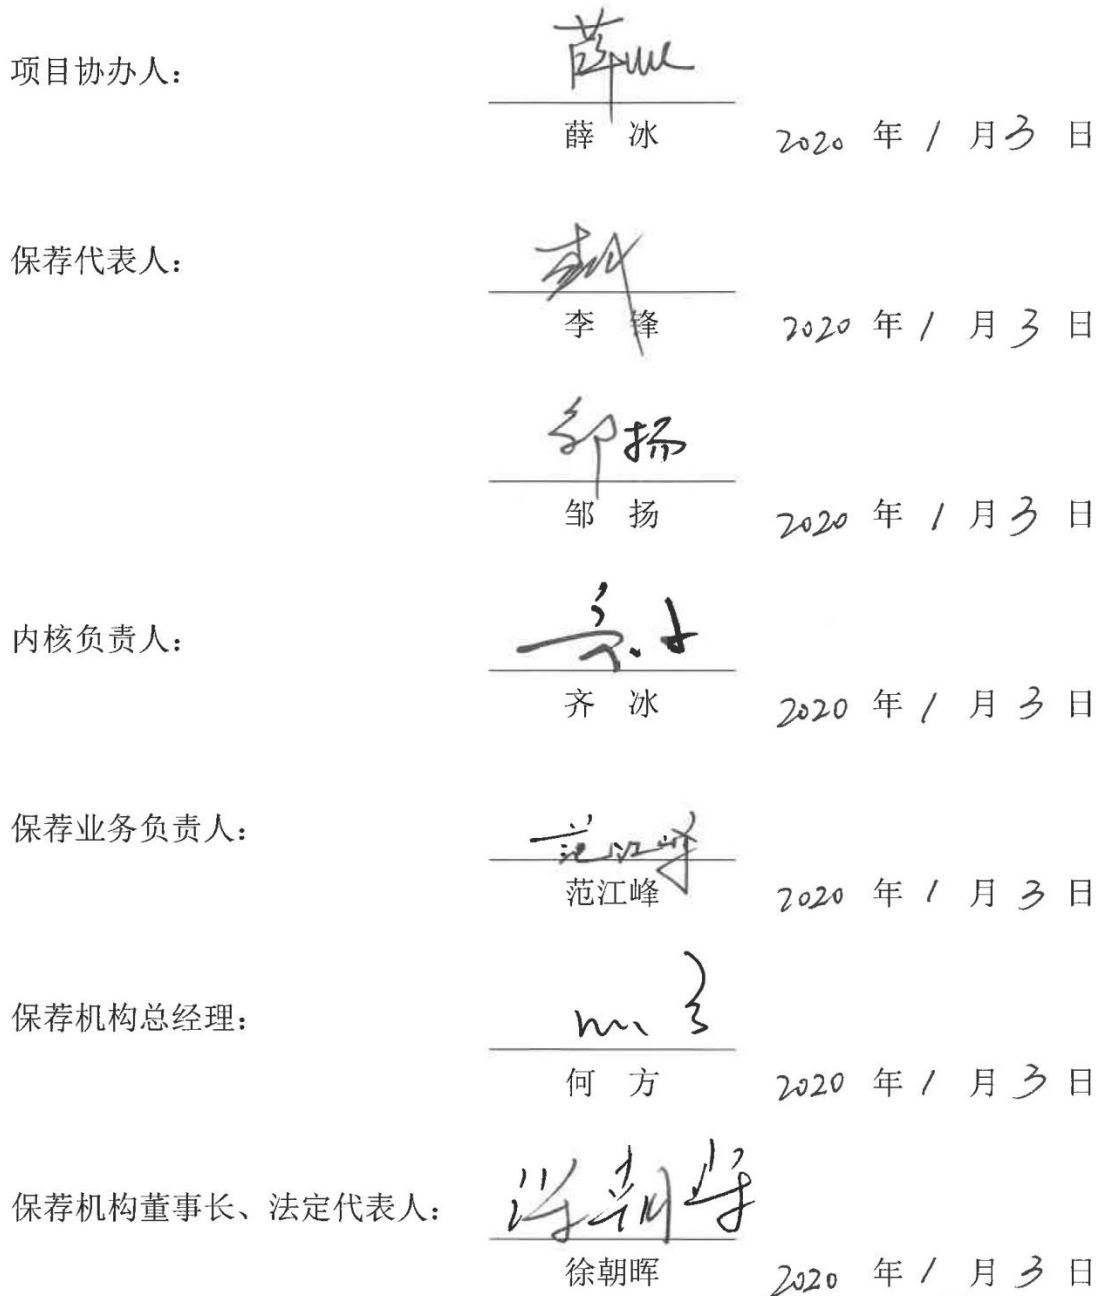 项目协办人：
薛冰
薛 冰 2020 年 1 月 3 日
保荐代表人：
李锋
李 锋 2020 年 1 月 3 日
邹扬
邹 扬 2020 年 1 月 3 日
内核负责人：
齐冰
齐 冰 2020 年 1 月 3 日
保荐业务负责人：
范江峰
范江峰 2020 年 1 月 3 日
保荐机构总经理：
何方
何 方 2020 年 1 月 3 日
保荐机构董事长、法定代表人：
徐朝晖
徐朝晖 2020 年 1 月 3 日